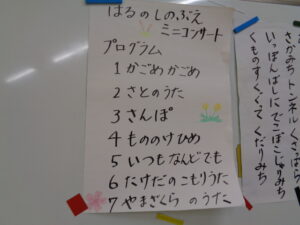 はるのしのぶえ
ミニコンサート
プログラム
1 かごめかごめ
2 さとのうた
3 さんぽ
4 もののけひめ
5 いつもなんどでも
6 たけだのこもりうた
7 やまざくらのうた
さかみち トンネル くさっぱら
いっぽんばしに でこぼこじゃりみち
くものすくぐって くだりみち